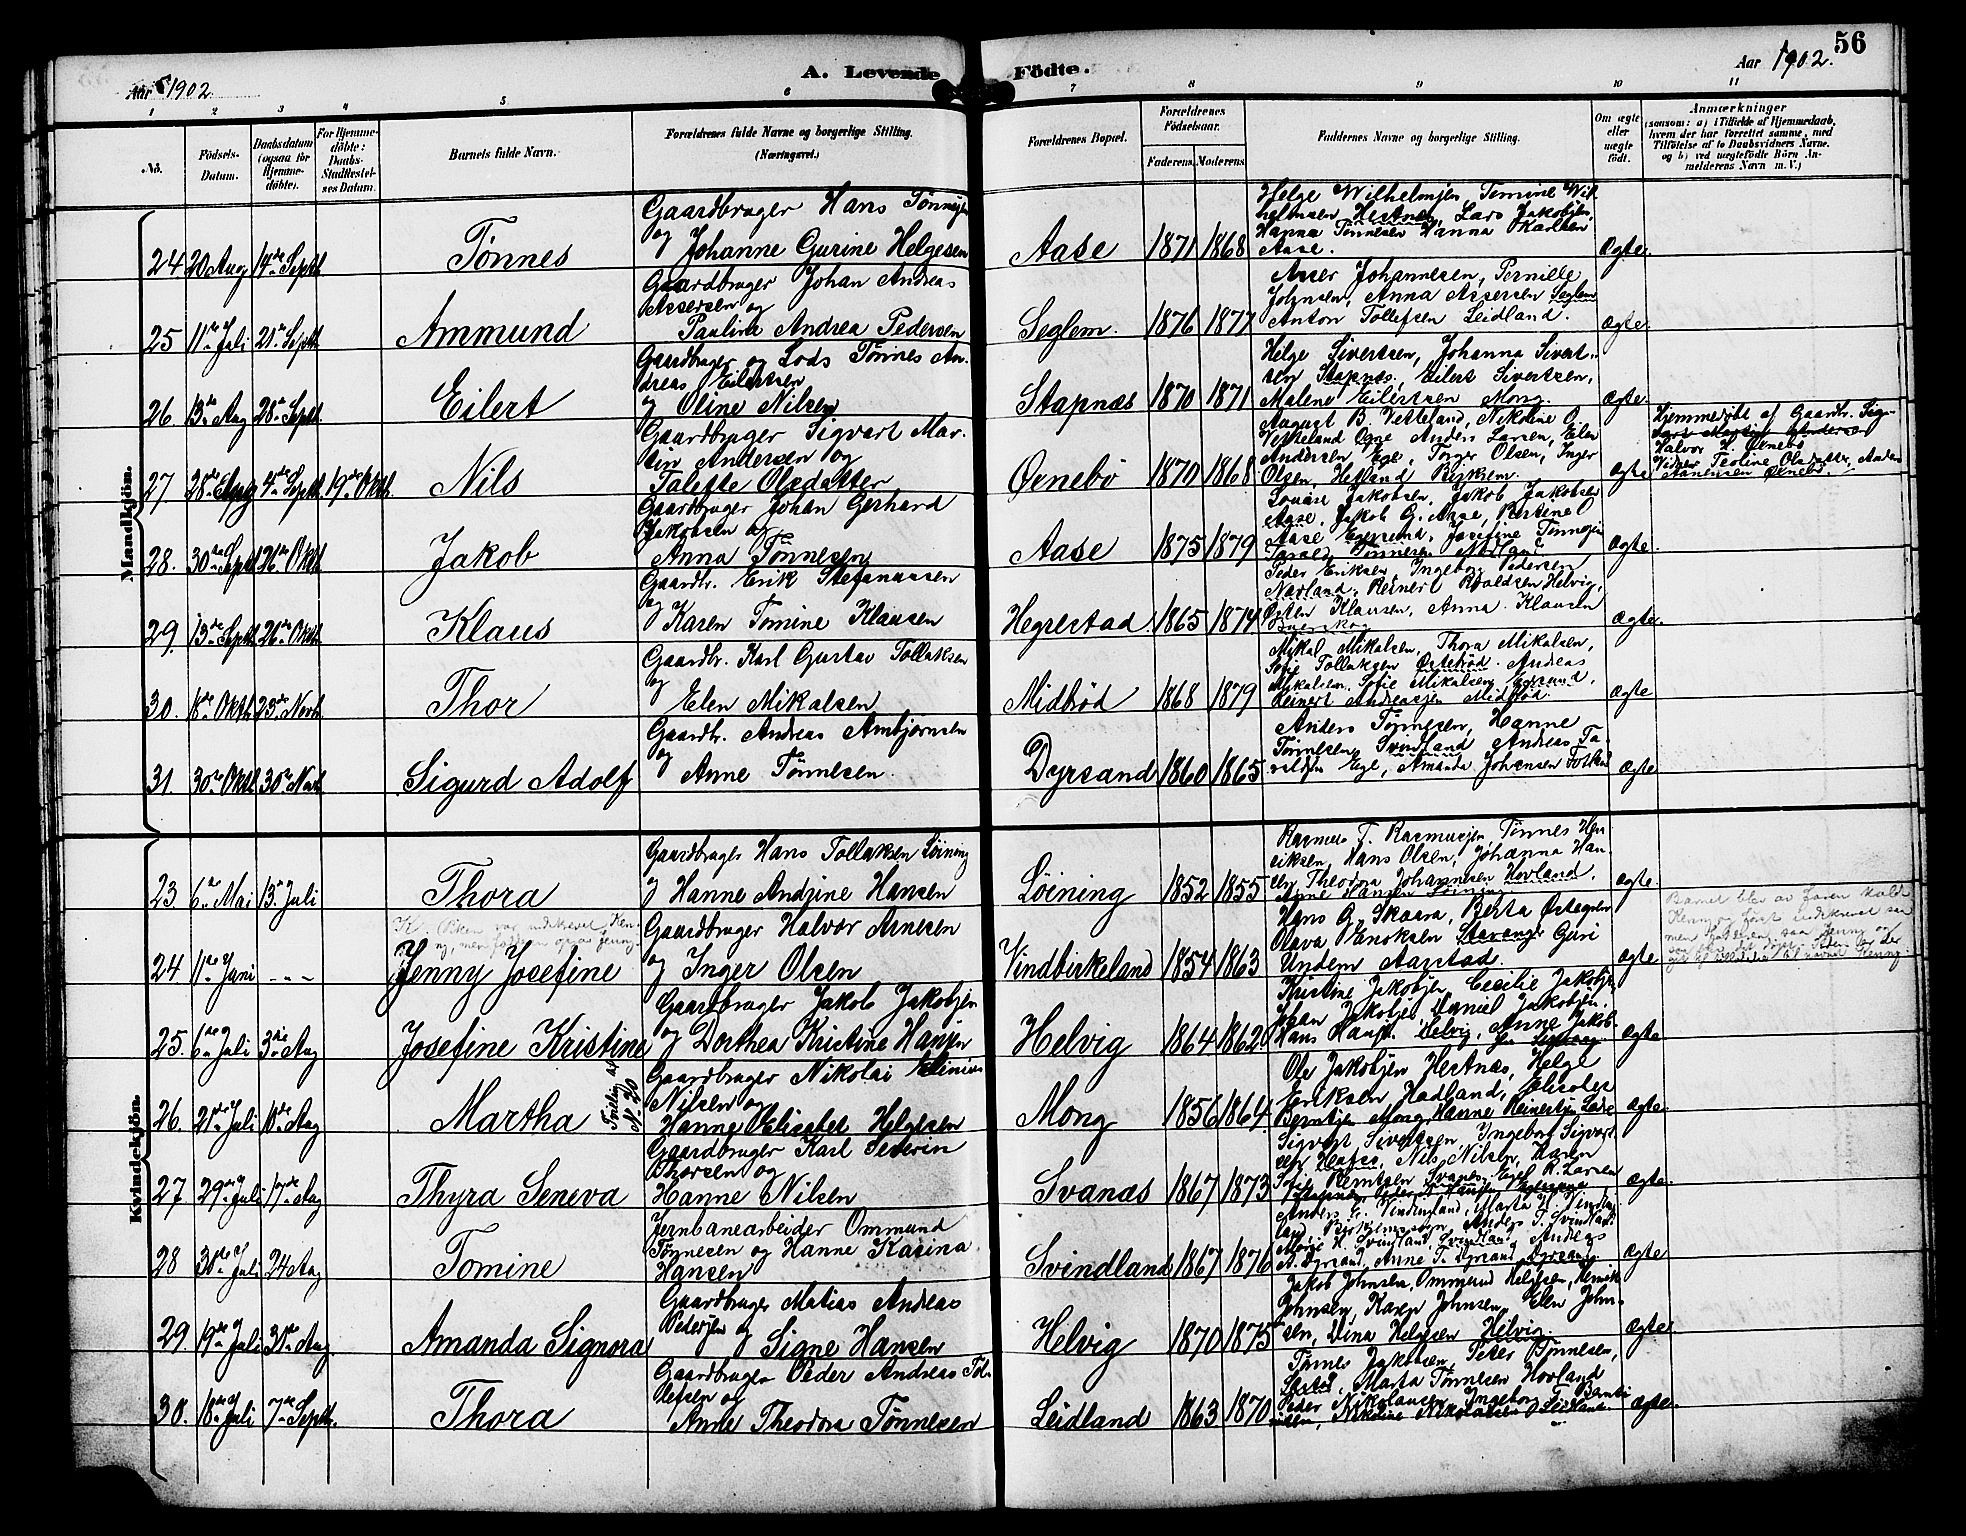 56
A. Levende Födte.
Aar 1902
Aar 1902.
1 2 3 4 5 6 7 8 9 10 11
No.
Födsels-Datum.
Daabsdatum (ogsaa for Hjemme-døbte).
For Hjemme-döbte: Daabs-Stadfæstelses Datum.
Barnets fulde Navn.
Forældrenes fulde Navne og borgerlige Stilling. (Næringsvei.)
Forældrenes Bopæl.
Forældrenes Födselsaar.
Faderens. Moderens.
Faddernes Navne og borgerlige Stilling.
Om ægte eller uægte födt.
Anmærkninger
(saasom: a) i Tilfælde af Hjemmedaab, hvem der har forrettet samme, med Tilföielse af to Daabsvidners Navne. og b) ved uægtefödte Börn Anmelderens Navn m.V.)
Mandkjön.
24 20 Aug 14de Septb. Tønnes
Gaardbruger Hans Tønnesen
og Johanne Gurine Helgesen
Aase 1871 1868
Helge Wilhelmsen, Temine Wil-
helmsen Hestnes, Lars Jakobsen,
Hanna Tønnesen Hanna Karlsen
Aase.
Ægte.
25 11te Juli 21de Septb. Ammund
Gaardbruger Johan Andreas
Assersen og
Paulina Andrea Pedersen
Seglem. 1876 1877
Asser Johannesen, Pernille
Johnsen, Anna Assersen Seglem
Anton Tollefsen Leidland.
Ægte.
26. 13de Aug 28de Septb. Eilert
Gaardbruger og Lods Tønnes An-
dreas Eilertsen
og Oline Nilsen
Stapnæs 1870 1871
Helge Sivertsen, Johanna Sivert-
sen Stapnæs, Eilert Sivertsen,
Malene Eilertsen Mong.
Ægte.
27 28de Aug 4de Septb. 19de Oktb. Nils
Gaardbruger Sigvart Mar-
tin Andersen og
Talette Olsdatter
Ørnebø 1870 1868
August B. Vetteland, Nikoline O.
Vetteland Ogne Anders Larsen, Elen
Andersen Ege, Tonger Olsen, Inger
Olsen, Hetland
Ægte
Hjemmedøbt af Gaardbr. Sig-
vart Martin Andersen
Halvor Ørnebø
Vidner Tealine Olsdatter, Anders
Aanensen Ørnebø
28. 30de Septb 26de Oktb Jakob
Gaardbruger Johan Gerhard
Jakobsen og
Anna Tønnesen
Aase 1875 1879
Louise Jakobsen, Jakob Jakobsen
Aase, Jakob G. Aase, Bertine
Aase Egersund, Josefine Tønnesen
Tønnesen
Ægte.
29. 13de Septb 26de Oktb. Klaus
Gaardbr. Erik Stefanussen
og
Karen Tomine Klausen
Hegrestad. 1865 1874
Peder Eriksen, Ingeborg Pedersen
Nærland, Reinert Roaldsen Helvig,
Østen Klausen, Anna Klausen
Ægte.
30. 18de Oktb. 23de Novb. Thor
Gaardbr. Karl Gustav Tollaksen
og
Elen Mikalsen
Midbrød 1868 1879
Mikal Mikalsen, Thora Mikalsen,
Sofie Tollaksen Østebrød. Andreas
Mikalsen, Sofie Mikalsen Egersund,
Reinert Andreassen Midbrød.
Ægte
31. 30te Oktb 30te Novb Sigurd Adolf
Gaardbr. Andreas Ambjørnsen
og
Anne Tønnesen
Dyrsand 1860 1865
Anders Tønnesen, Hanne
Tønnesen, Svindland Andreas Ta-
raldsen Ege, Amanda Johansen
Ægte
Kvindekjön.
23. 6te Mai 13de Juli Thora
Gaardbruger Hans Tollaksen Løining
og Hanne Andrine Hansen
Løining 1852 1855
Rasmus T. Rasmussen, Tønnes Hen-
riksen, Hans Olsen, Johanna Han-
sen Theodora Johannesen Hovland,
Anne Hansen Løining
ægte.
24. 11te Juni - „ - Jenny Josefine
Gaardbruger Halvor Arnesen
og Inger Olsen
Vindbirkeland 1854 1863
Hans G. Skaara, Berta Østegren
Olava Enoksen Stavanger Guri
Undem Aarstad.
ægte
Barnet blev av faren kaldt
Kenny og først indskrevet saa
25. 6te Juli 3die Aug Josefine Kristine
Gaardbruger Jakob Jakobsen
og Dorthea Kristine Hansen
Helvig 1864 1862
Kristine Jakobsen Cecilie Jakobsen
Johan Jakobsen, Daniel Jakobsen,
Hans Hansen Helvig, Anne Jakob-
ægte.
26. 21de Juli 10de Aug Martha
Tvilling af N. 20
Gaardbruger Nikolai Elinius
Nilsen og
Hanne Elisabet Helgesen
Mong 1856 1864.
Ole Jakobsen Hestnæs, Helge
Eriksen Hadland, Elisabet
Berntsen Mong, Hanne Reinertsen
ægte.
27 29de Juli 17de Aug Thyra Seneva
Gaardbruger Karl Severin
Thorsen og
Hanne Nilsen
Svanæs 1867 1873
Sigvart Sivertsen, Ingeborg Sigvart-
sen Hafsø, Nils Nilsen, Karen
Sofie Berntsen Svanes, R. Larsen
ægte
28 30de Juli 24 Aug Tomine
Jernbanearbeider Ommund
Tønnesen og Hanne Kasina
Hansen
Svindland 1867 1876
Anders G. Vindbirkeland, Marta H.
Anders T. Svindland
Marie H. Svindland Svindland, Andreas
A. Dyrsand, Anne T. Dyrsand Dyrsand
Ægte
29. 19de Juli 31te Aug Amanda Signora
Gaardbruger Matias Andreas
Pedersen og
Signe Hansen
Helvig 1870 1875
Jakob Johnsen, Ommund Helgesen, Henrik
Johnsen, Karen Johnsen, Elen John-
sen, Dina Helgesen Helvig
Ægte
30. 18de Juli 7de Septb. Thora
Gaardbruger Peder Andreas Tol-
lefsen og
Anne Theodora Tønnesen
Leidland 1863 1870
Tønnes Jakobsen, Peter Tønnesen,
Marta Tønnesen Hovland
Peder Nikolausen, Ingeborg G. Bernt-
sen, Nikoline Nikolaisen Leidland
Ægte.